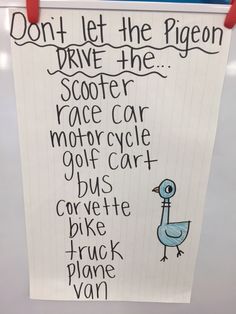 Don't let the Pigeon
DRIVE the...
scooter
race car
motorcycle
golf cart
bus
corvette
bike
truck
plane
van